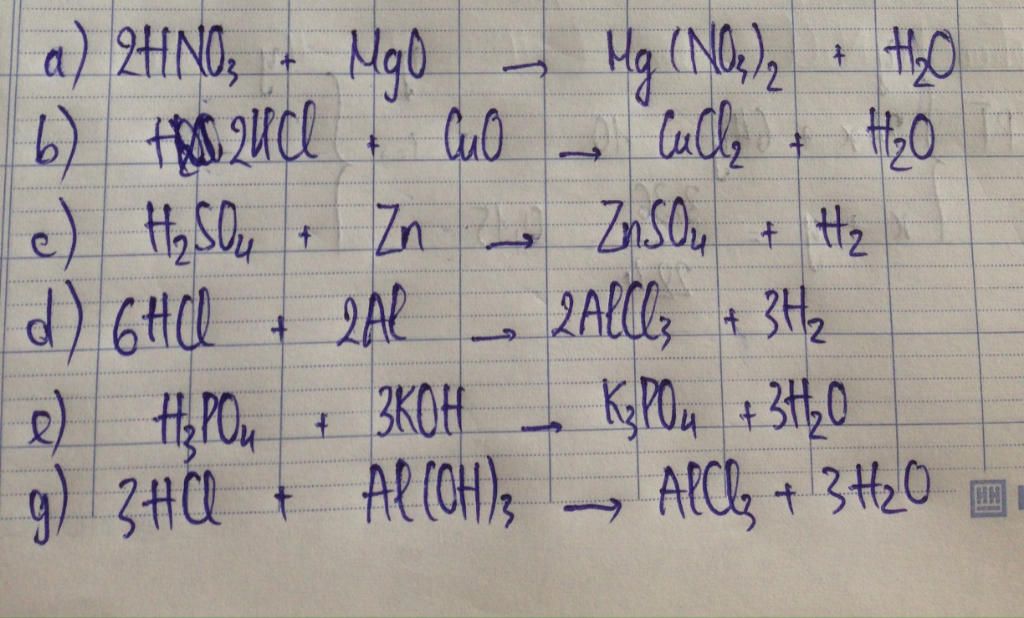 a) 2HNO₃ + MgO → Mg(NO₃)₂ + H₂O
b) 2HCl + CuO → CuCl₂ + H₂O
c) H₂SO₄ + Zn → ZnSO₄ + H₂
d) 6HCl + 2Al → 2AlCl₃ + 3H₂
e) H₃PO₄ + 3KOH → K₃PO₄ + 3H₂O
g) 3HCl + Al(OH)₃ → AlCl₃ + 3H₂O
HH